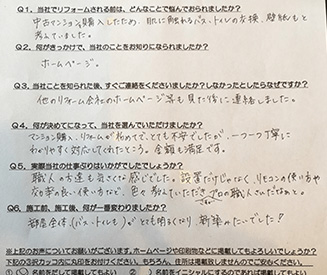 Q1. 当社でリフォームされる前は、どんなことで悩んでおられましたか?
中古マンション購入したため、肌に触れるバス、トイレの交換、壁紙もと
考えていました。
Q2. 何がきっかけで、当社のことをお知りになられましたか?
ホームページ。
Q3. 当社のことを知られた後、すぐご連絡をくださいましたか?しなかったとしたらなぜですか?
他のリフォーム会社のホームページ等も見た後に連絡しました。
Q4. 何が決めてになって、当社を選んでいただけましたか?
マンション購入、リフォームが初めてで、とても不安でしたが、一つ一つ丁寧に
わかりやすく対応してくれたところ。金額も満足です。
Q5. 実際当社の仕事ぶりはいかがでしたでしょうか?
職人の方達も気さくな感じでした。設置だけじゃなく、リモコンの使い方や
な使い方など、色々教えていただき、プロの職人さんだなぁと。
Q6. 施工前、施工後、何が一番変わりましたか?
部屋全体、(バス、トイレも)がとても明るくなり、新築みたいでした!
※上記のお声についてお願いがございます。ホームページや印刷物などに掲載してもよろしいでしょうか?
下記の3択カッコ内に丸印をお付けください。もちろん、住所は掲載致しませんのでご安心ください。
1( ) 名前を出して掲載してもよい 2( ) 名前をイニシャルにするのであれば掲載可